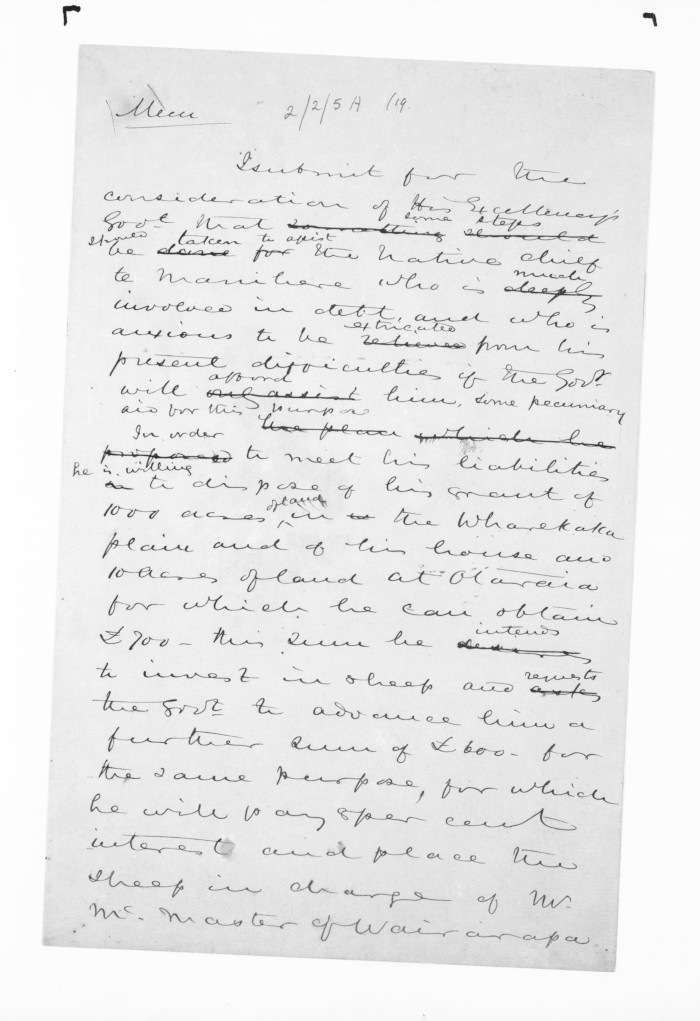 Mem 2/2/5A /19.
I submit for the
consideration of His Excellency's
some steps
Govt. that something should
should taken to assist
be done for the Native chief
much
te Manihera who is deeply
involved in debt, and who is
extricated
anxious to be relieved from his
present difficulties if the Govt.
afford
will assist him, some pecuniary
aid for this purpose
the plan which he
In order
proposed to meet his liabilities
he is willing
is to dispose of his grant of
of land
1000 acres, in the Wharekaka
plain and of his house and
10 acres of land at Otaraia
for which he can obtain
£700 - this sum he
intends
to invest in sheep and
requests
asks
the Govt. to advance him a
further sum of £600 - for
the same purpose, for which
he will pay 8 per cent
interest and place the
sheep in charge of Mr.
Mc. Master of Wairarapa